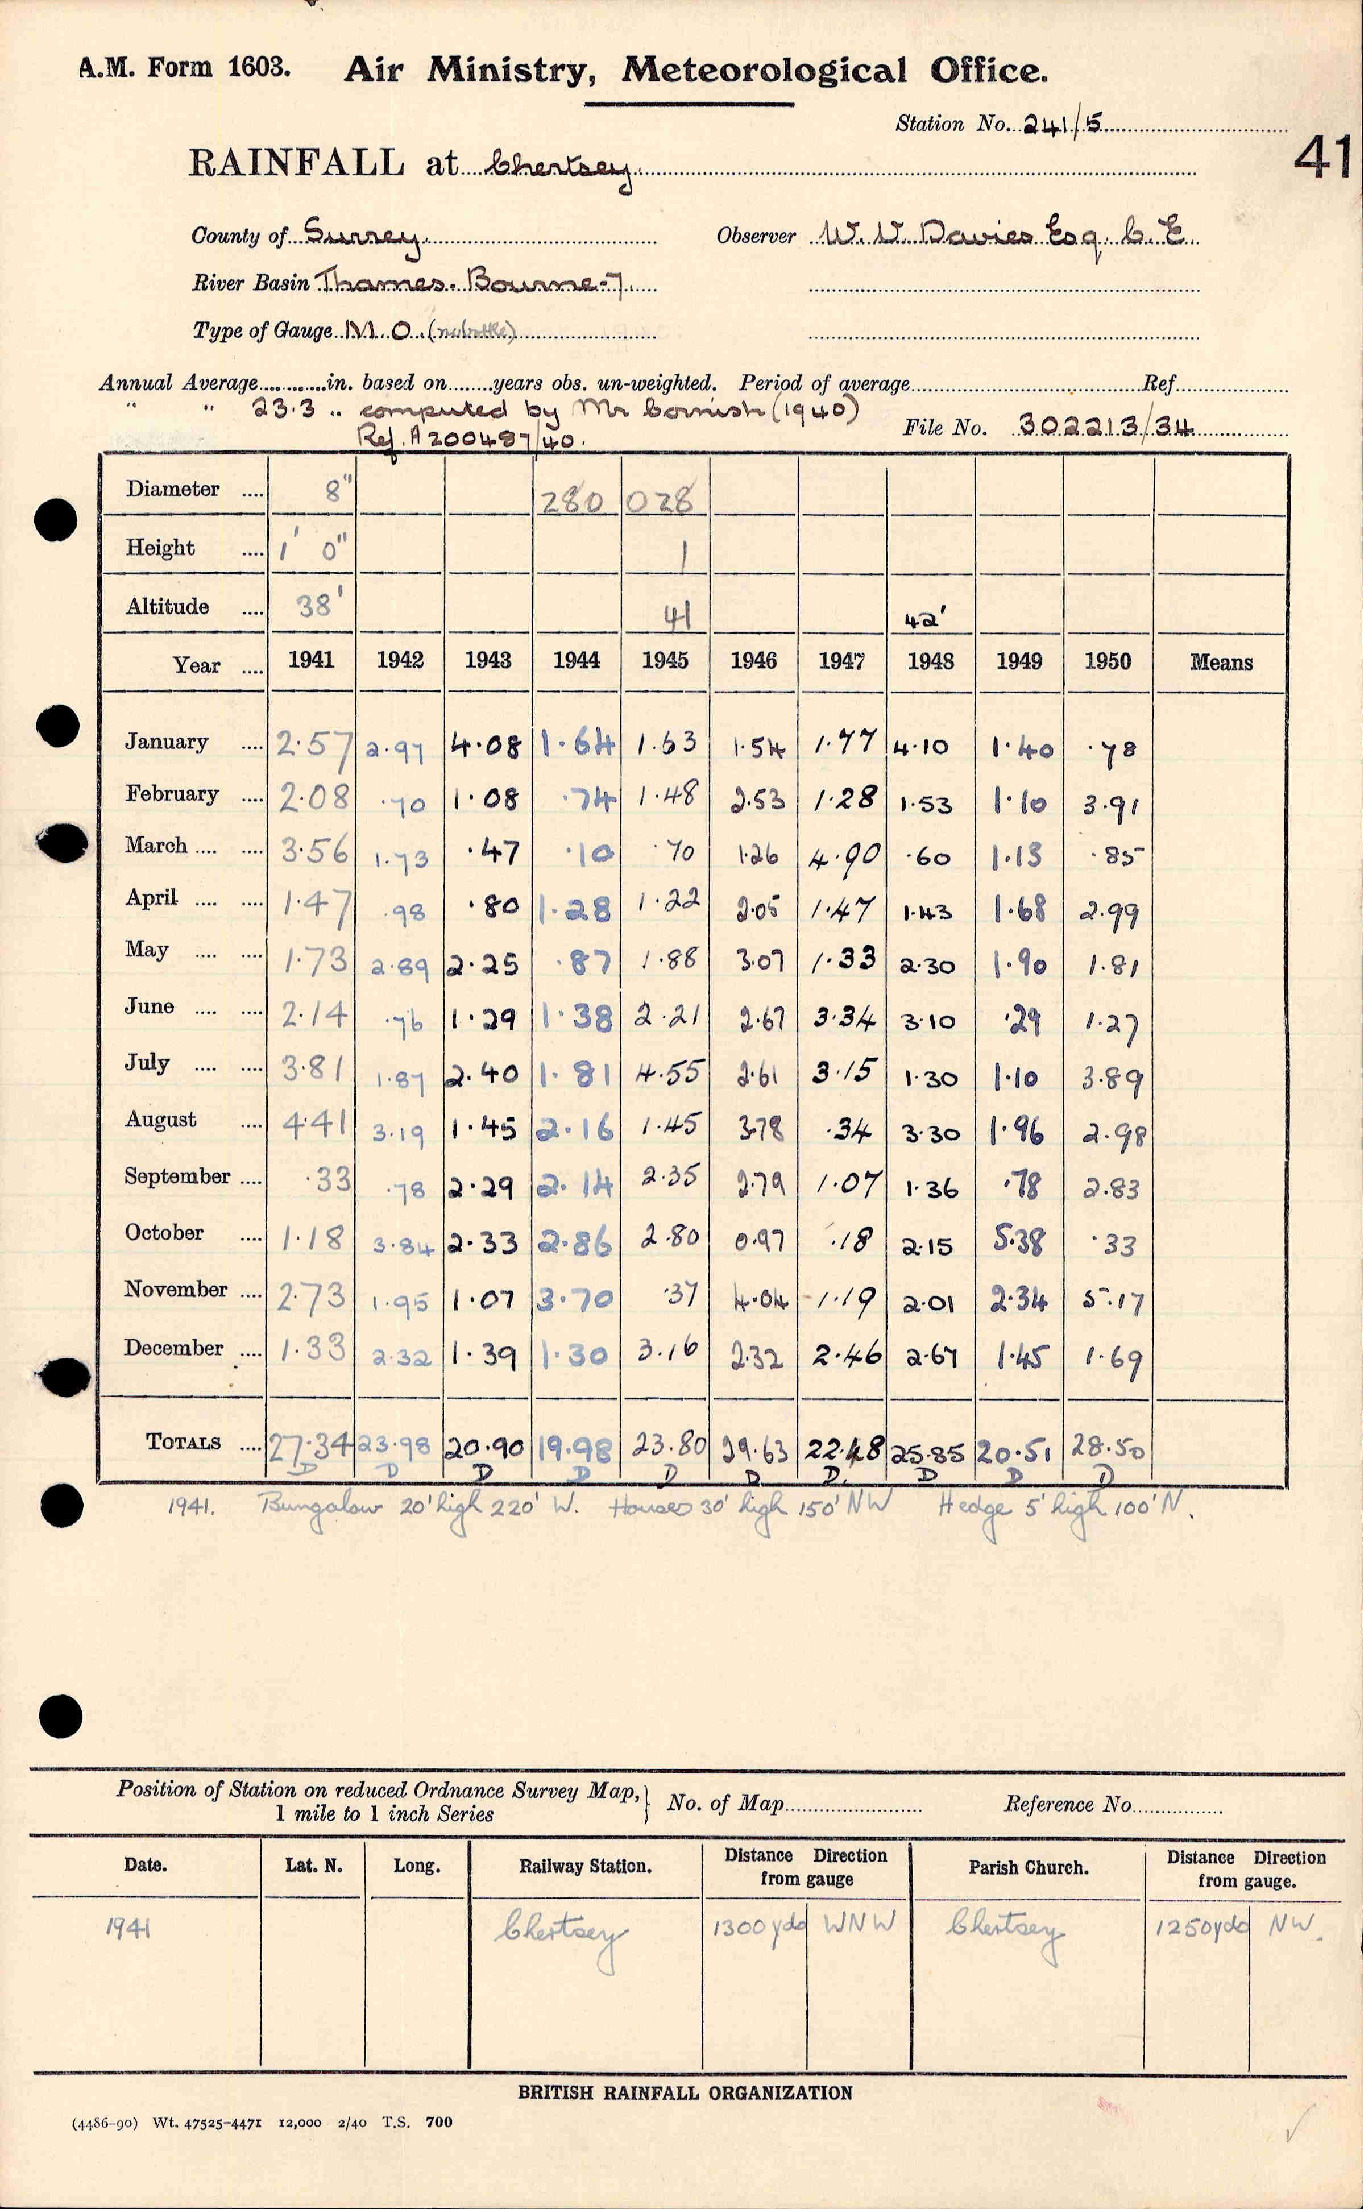 A.M. Form 1603. Air Ministry, Meteorological Office.
Station No. 241/5
41
RAINFALL at Chertsey
County of Surrey. Observer W. V. Davies Esq. C. E.
River Basin Thames. Bourne-7.
Type of Gauge M.O. (no bottle)
Annual Average............in. based on........years obs. un-weighted. Period of average........Ref........
" " 23.3 .. computed by Mr Cornish (1940)
File No. 302213/34
Ref. A200487/40.
Diameter .... 8" 280 028
Height .... 1' 0" 1
Altitude .... 38' 41 42'
Year .... 1941 1942 1943 1944 1945 1946 1947 1948 1949 1950 Means
January .... 2.57 2.97 4.08 1.64 1.63 1.54 1.77 4.10 1.40 .78
February .... 2.08 .70 1.08 .74 1.48 2.53 1.28 1.53 1.10 3.91
March .... .... 3.56 1.73 .47 .10 .70 1.26 4.90 .60 1.13 .85
April .... .... 1.47 .98 .80 1.28 1.22 2.05 1.47 1.43 1.68 2.99
May .... .... 1.73 2.89 2.25 .87 1.88 3.07 1.33 2.30 1.90 1.81
June .... .... 2.14 .76 1.29 1.38 2.21 2.67 3.34 3.10 .29 1.27
July .... .... 3.81 1.87 2.40 1.81 4.55 2.61 3.15 1.30 1.10 3.89
August .... 4.41 3.19 1.45 2.16 1.45 3.78 .34 3.30 1.96 2.98
September .... .33 .78 2.29 2.14 2.35 2.79 1.07 1.36 .78 2.83
October .... 1.18 3.84 2.33 2.86 2.80 0.97 .18 2.15 5.38 .33
November .... 2.73 1.95 1.07 3.70 .37 4.04 1.19 2.01 2.34 5.17
December .... 1.33 2.32 1.39 1.30 3.16 2.32 2.46 2.67 1.45 1.69
TOTALS .... 27.34 23.98 20.90 19.98 23.80 29.63 22.48 25.85 20.51 28.50
D D D D D D D. D D D
1941. Bungalow 20' high 220' W. Houses 30' high 150' NW Hedge 5' high 100' N.
Position of Station on reduced Ordnance Survey Map, 1 mile to 1 inch Series } No. of Map........ Reference No........
Date. Lat. N. Long. Railway Station. Distance Direction from gauge Parish Church. Distance Direction from gauge.
1941 Chertsey 1300 yds WNW Chertsey 1250 yds NW.
BRITISH RAINFALL ORGANIZATION
(4486-90) Wt. 47525-4471 12,000 2/40 T.S. 700